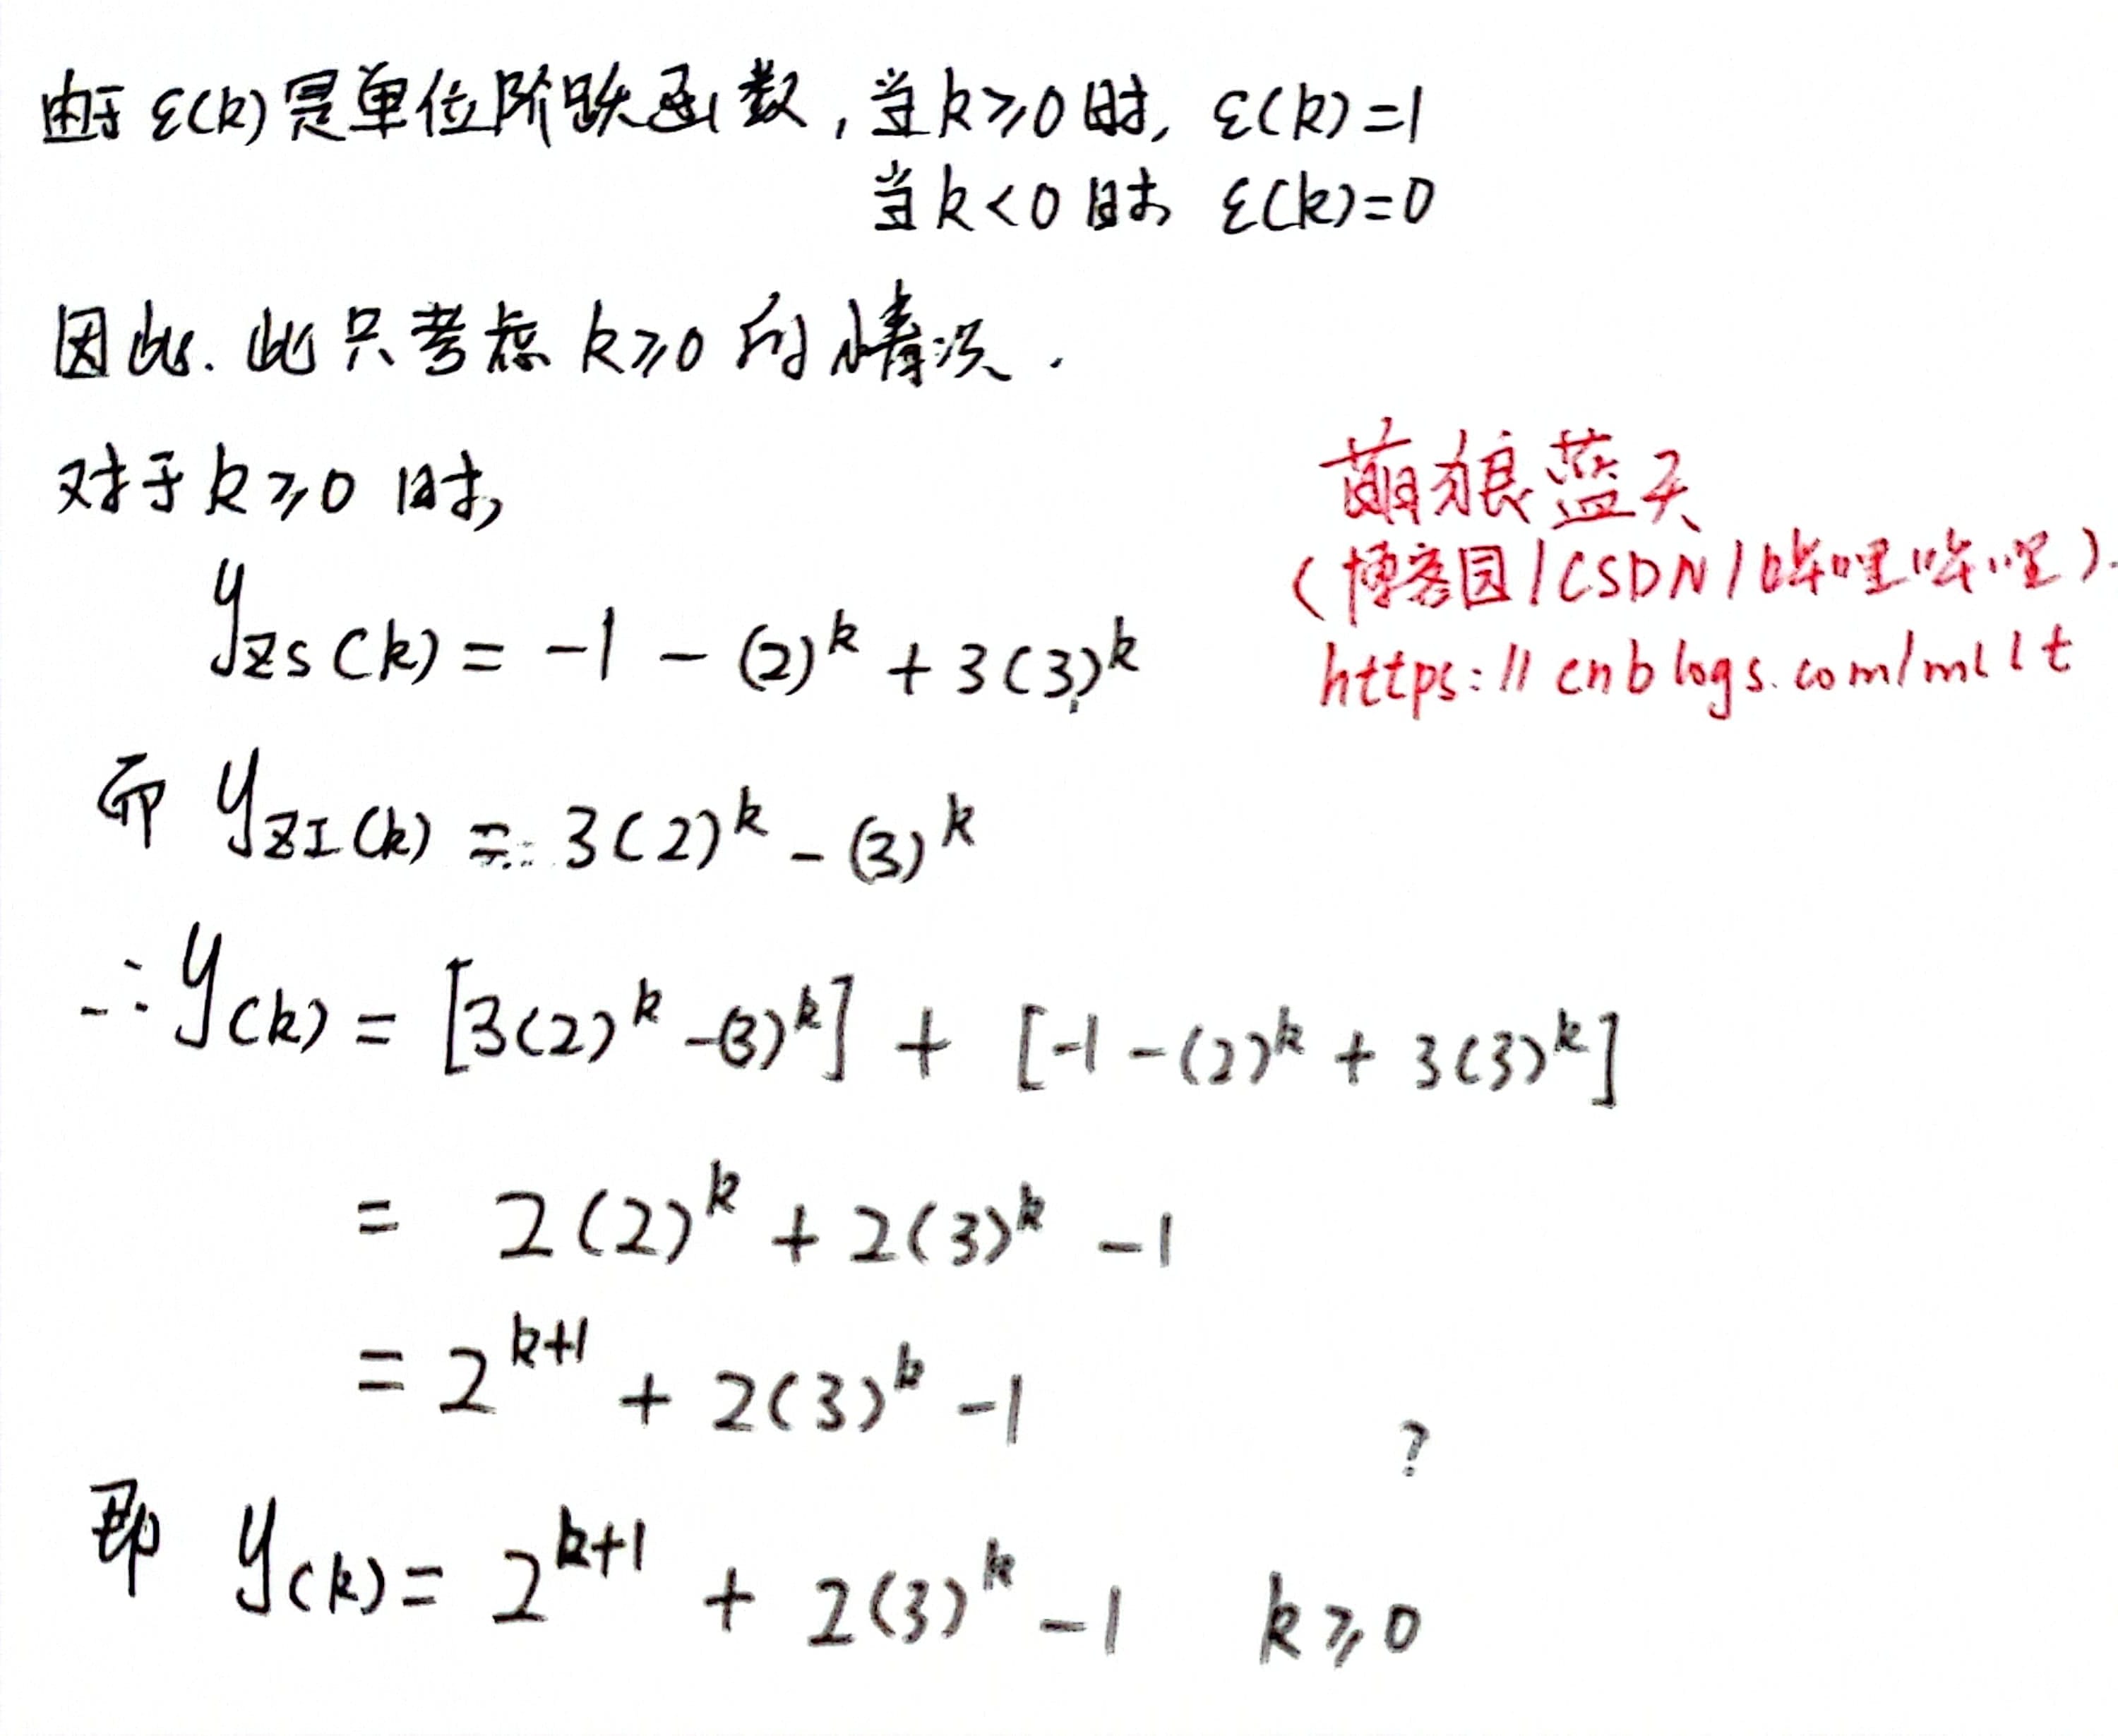 由于 ε(k) 是单位阶跃函数，当 k≥0 时, ε(k)=1
当 k<0 时 ε(k)=0
因此. 此只考虑 k≥0 的情况.
对于 k≥0 时,
萌狼蓝天
(博客园/CSDN/哔哩哔哩).
https://cnblogs.com/mllt
y_{ZS}(k) = -1 - (2)^k + 3(3)^k
而 y_{ZI}(k) = 3(2)^k - (3)^k
∴ y(k) = [3(2)^k -(3)^k] + [-1 -(2)^k + 3(3)^k]
= 2(2)^k + 2(3)^k -1
= 2^{k+1} + 2(3)^k -1
?
即 y(k) = 2^{k+1} + 2(3)^k -1 k≥0